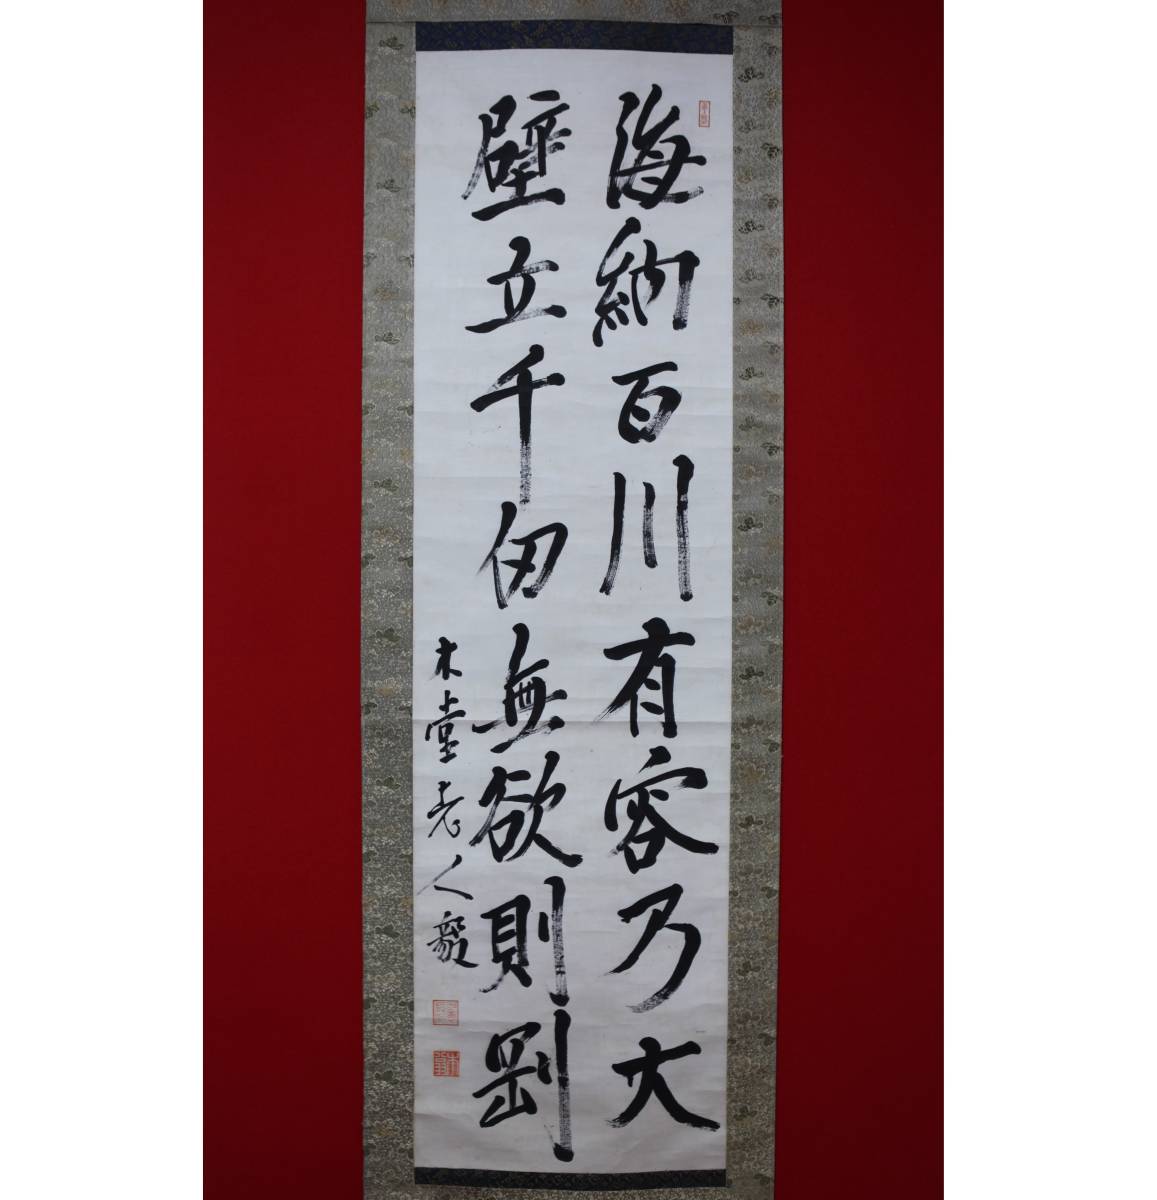 海納百川有容乃大
壁立千仞無欲則剛
木堂老人毅